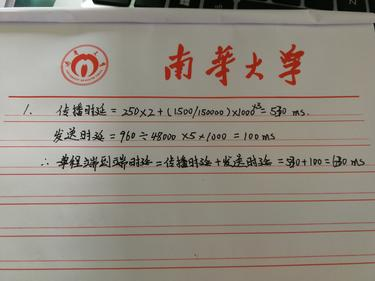 南华大学
1. 传播时延 = 250×2 + (1500/150000)×1000×3 = 530 ms.
发送时延 = 960 ÷ 48000 × 5 × 1000 = 100 ms
∴ 单程端到端时延 = 传播时延 + 发送时延 = 530 + 100 = 630 ms.